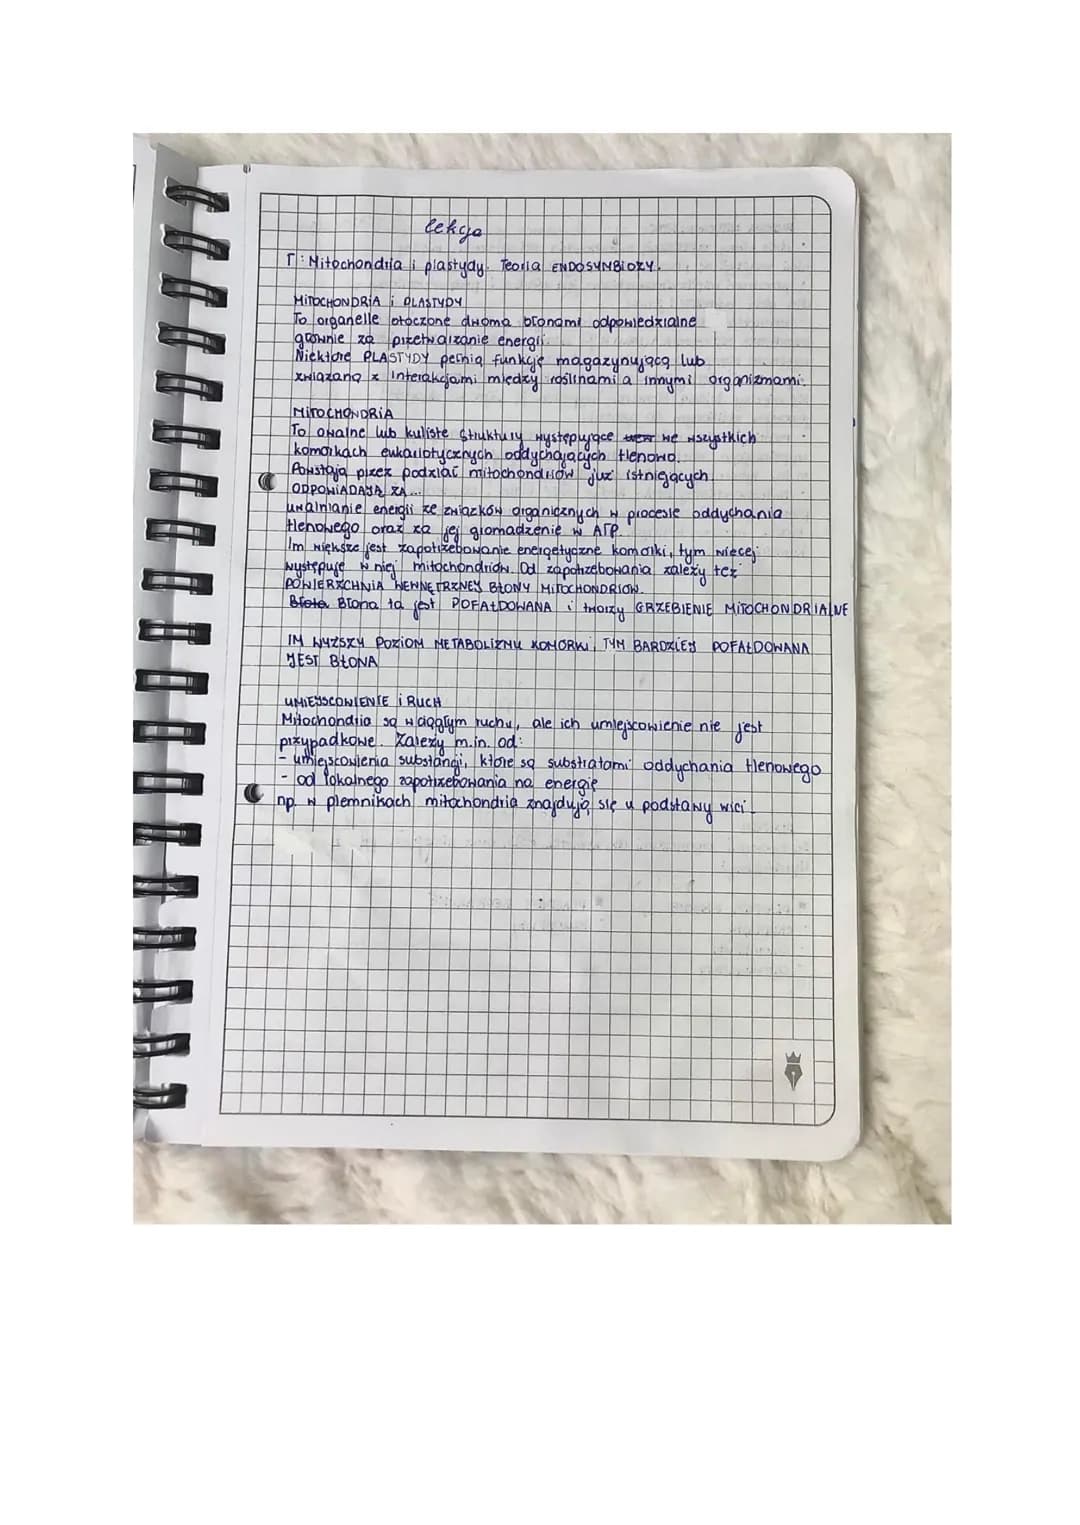 lekcja
T: Mitochondria i plastydy. Teoria ENDOSYMBIOZY.
MITOCHONDRIA i PLASTYDY
To organelle otoczone dwoma błonami odpowiedzialne
głównie za przetwarzanie energii.
Niektóre PLASTYDY pełnią funkcję magazynującą lub
związaną z interakcjami między roślinami a innymi organizmami.
MITOCHONDRIA
To owalne lub kuliste struktury występujące we wszystkich
komórkach eukariotycznych oddychających tlenowo.
Powstają przez podział mitochondriów już istniejących.
ODPOWIADAJĄ ZA...
uwalnianie energii ze związków organicznych w procesie oddychania
tlenowego oraz za jej gromadzenie w ATP.
Im większe jest zapotrzebowanie energetyczne komórki, tym więcej
występuje w niej mitochondriów. Od zapotrzebowania zależy też
POWIERZCHNIA WEWNĘTRZNEJ BŁONY MITOCHONDRIÓW.
Błona ta jest POFAŁDOWANA i tworzy GRZEBIENIE MITOCHONDRIALNE
IM WYŻSZY POZIOM METABOLIZMU KOMÓRKI, TYM BARDZIEJ POFAŁDOWANA
JEST BŁONA
UMIEJSCOWIENIE i RUCH
Mitochondria są w ciągłym ruchu, ale ich umiejscowienie nie jest
przypadkowe. Zależy m.in. od:
- umiejscowienia substancji, które są substratami oddychania tlenowego
- od lokalnego zapotrzebowania na energię
np. w plemnikach mitochondria znajdują się u podstawy wici.